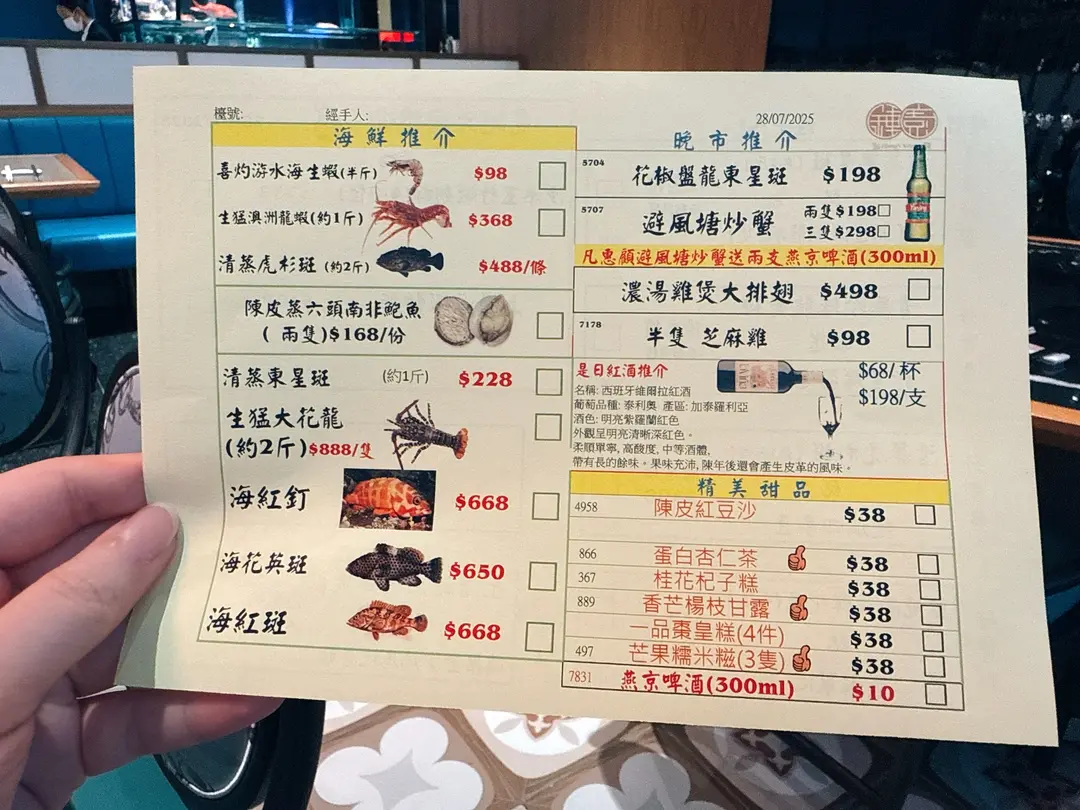 檯號:
經手人:
海鮮推介
喜灼游水海生蝦(半斤) $98
生猛澳洲龍蝦(約1斤) $368
清蒸虎杉斑 (約2斤) $488/條
陳皮蒸六頭南非鮑魚
( 兩隻)$168/份
清蒸東星斑 (約1斤) $228
生猛大花龍
(約2斤)$888/隻
海紅釘 $668
海花英斑 $650
海紅斑 $668
28/07/2025
晚市推介
5704 花椒盤龍東星斑 $198
5707 避風塘炒蟹 兩隻$198
三隻$298
凡惠顧避風塘炒蟹送兩支燕京啤酒(300ml)
濃湯雞煲大排翅 $498
7178 半隻 芝麻雞 $98
是日紅酒推介 $68/杯
$198/支
名稱: 西班牙維爾拉紅酒
葡萄品種: 泰利奧 產區: 加泰羅利亞
酒色: 明亮紫羅蘭紅色
外觀呈明亮清晰深紅色。
柔順單寧, 高酸度, 中等酒體,
帶有長的餘味。果味充沛, 陳年後還會產生皮革的風味。
精美甜品
4958 陳皮紅豆沙 $38
866 蛋白杏仁茶 $38
367 桂花杞子糕 $38
889 香芒楊枝甘露 $38
一品棗皇糕(4件) $38
497 芒果糯米糍(3隻) $38
7831 燕京啤酒(300ml) $10